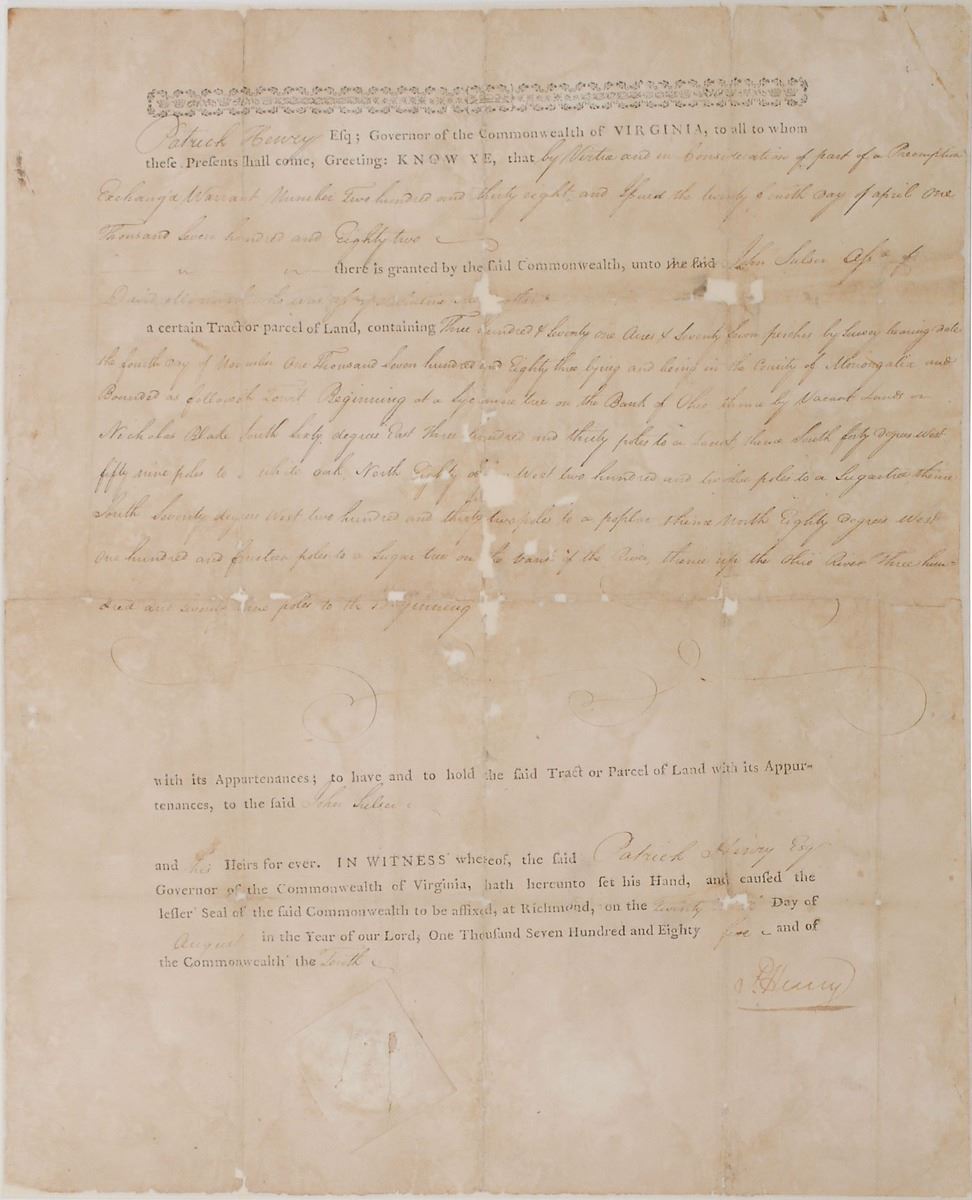 Patrick Henry Esq; Governor of the Commonwealth of VIRGINIA, to all to whom
theſe Preſents ſhall come, Greeting: KNOW YE, that by Virtue and in Consideration of part of a Preemption
Exchang'd Warrant Number Two hundred and thirty eight and Iſsued the twenty fourth Day of april One
Thousand Seven hundred and Eighty two
there is granted by the ſaid Commonwealth, unto the ſaid John Sulser Aſs.ee of
David who was aſs.ee
a certain Tract or parcel of Land, containing Three hundred & Seventy one Acres & Seventy Seven perches by Survey bearing date
the fourth Day of November One Thousand Seven hundred and Eighty three lying and being in the County of Monongalia and
Bounded as followeth Towit Beginning at a Sycamore tree on the Bank of Ohio thence by Vacant Lands or
Nicholas Blake South Sixty degrees East three hundred and thirty poles to a Locust thence South forty degrees West
fifty nine poles to a white oak, North Eighty West two hundred and twelve poles to a Sugartree thence
South Seventy degrees West two hundred and thirty two poles to a poplar thence North Eighty degrees West
One hundred and poles to a Sugar tree on the bank of the River, thence up the Ohio River three hun-
dred and poles to the Beginning
with its Appurtenances; to have and to hold the ſaid Tract or Parcel of Land with its Appur-
tenances, to the ſaid John Sulser
and his Heirs for ever. IN WITNESS whereof, the ſaid Patrick Henry Esq
Governor of the Commonwealth of Virginia, hath hereunto ſet his Hand, and cauſed the
leſſer Seal of the ſaid Commonwealth to be affixed, at Richmond, on the twenty Day of
August in the Year of our Lord, One Thouſand Seven Hundred and Eighty five and of
the Commonwealth the Tenth
P. Henry